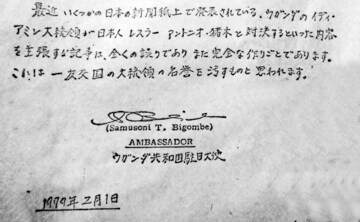 最近 いくつかの日本の新聞紙上で発表されている、ウガンダのイディ・
アミン大統領が日本人 レスラー アントニオ・猪木と対決するといった内容
を主張する記事は、全くの誤りであり また完全な作りごとであります。
これは 一友交国の大統領の名誉を汚すものと思われます。
(Samusoni T. Bigombe)
AMBASSADOR
ウガンダ共和国駐日大使
1979年2月1日